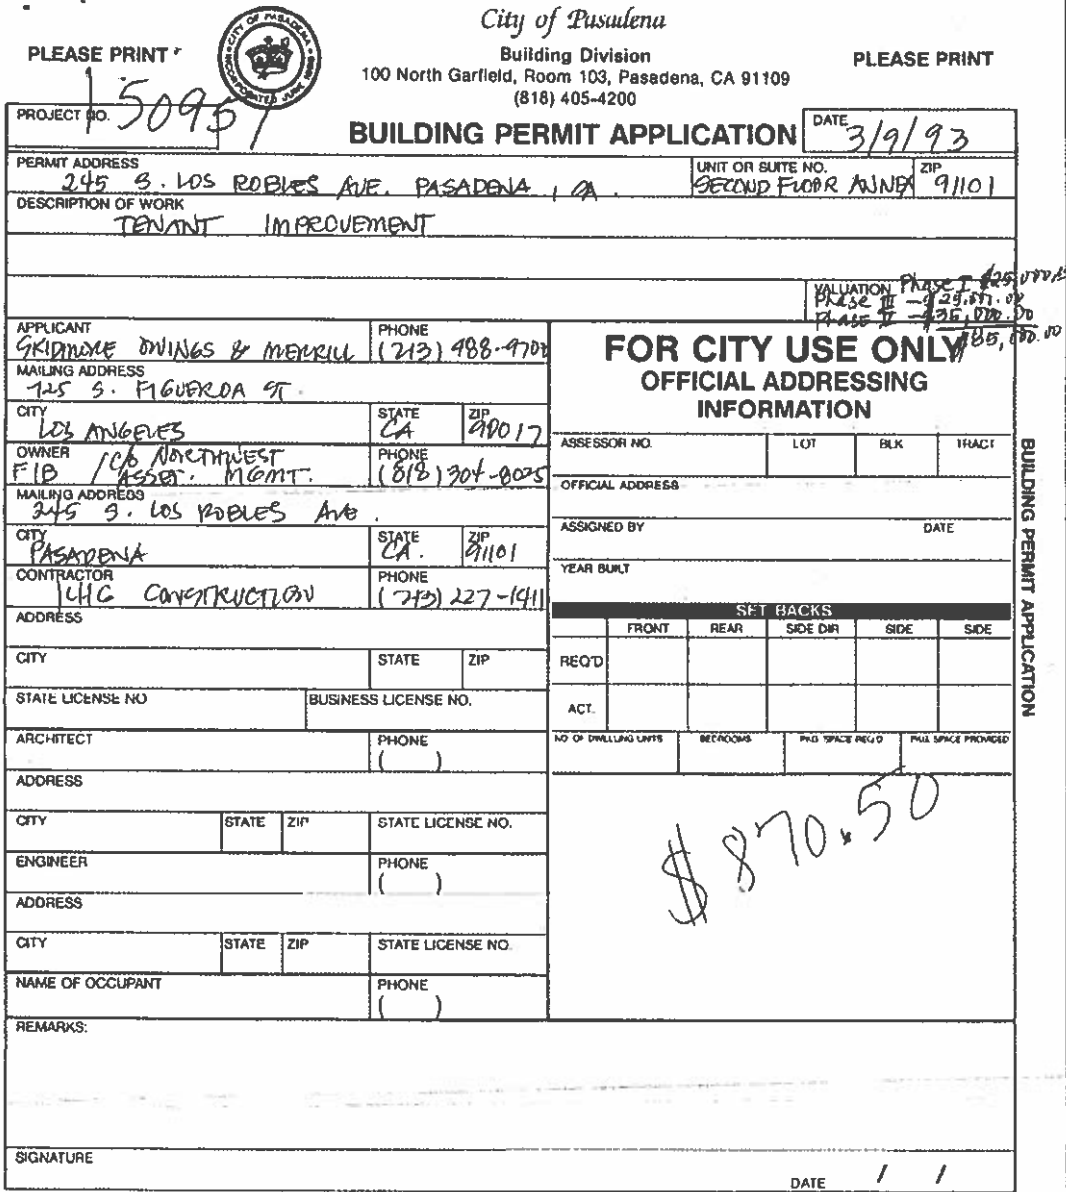 City of Pasadena
PLEASE PRINT
Building Division
PLEASE PRINT
100 North Garfield, Room 103, Pasadena, CA 91109
(818) 405-4200
CITY OF PASADENA INCORPORATED JUNE
PROJECT NO. 150957
BUILDING PERMIT APPLICATION
DATE 3/9/93
PERMIT ADDRESS UNIT OR SUITE NO. ZIP
245 S. LOS ROBLES AVE. PASADENA, CA. SECOND FLOOR ANNEX 91101
DESCRIPTION OF WORK
TENANT IMPROVEMENT
VALUATION Phase I $25,000
Phase III - $25,000.00
Phase II - $35,000.00
$85,000.00
APPLICANT PHONE
SKIDMORE OWINGS & MERRILL (213) 488-9700
MAILING ADDRESS
725 S. FIGUEROA ST.
CITY STATE ZIP
LOS ANGELES CA 90017
OWNER PHONE
FIB / c/o NORTHWEST ASSET. MGMT. (818) 304-8025
MAILING ADDRESS
245 S. LOS ROBLES AVE.
CITY STATE ZIP
PASADENA CA. 91101
CONTRACTOR PHONE
CONSTRUCTION (213) 227-1411
ADDRESS
CITY STATE ZIP
STATE LICENSE NO BUSINESS LICENSE NO.
ARCHITECT PHONE
( )
ADDRESS
CITY STATE ZIP STATE LICENSE NO.
ENGINEER PHONE
( )
ADDRESS
CITY STATE ZIP STATE LICENSE NO.
NAME OF OCCUPANT PHONE
( )
FOR CITY USE ONLY
OFFICIAL ADDRESSING
INFORMATION
ASSESSOR NO. LOT BLK TRACT
OFFICIAL ADDRESS
ASSIGNED BY DATE
YEAR BUILT
SET BACKS
FRONT REAR SIDE DIR SIDE SIDE
REQ'D
ACT.
NO OF DWELLING UNITS BEDROOMS PKG SPACE REQ'D PKG SPACE PROVIDED
$870.50
BUILDING PERMIT APPLICATION
REMARKS:
SIGNATURE
DATE / /